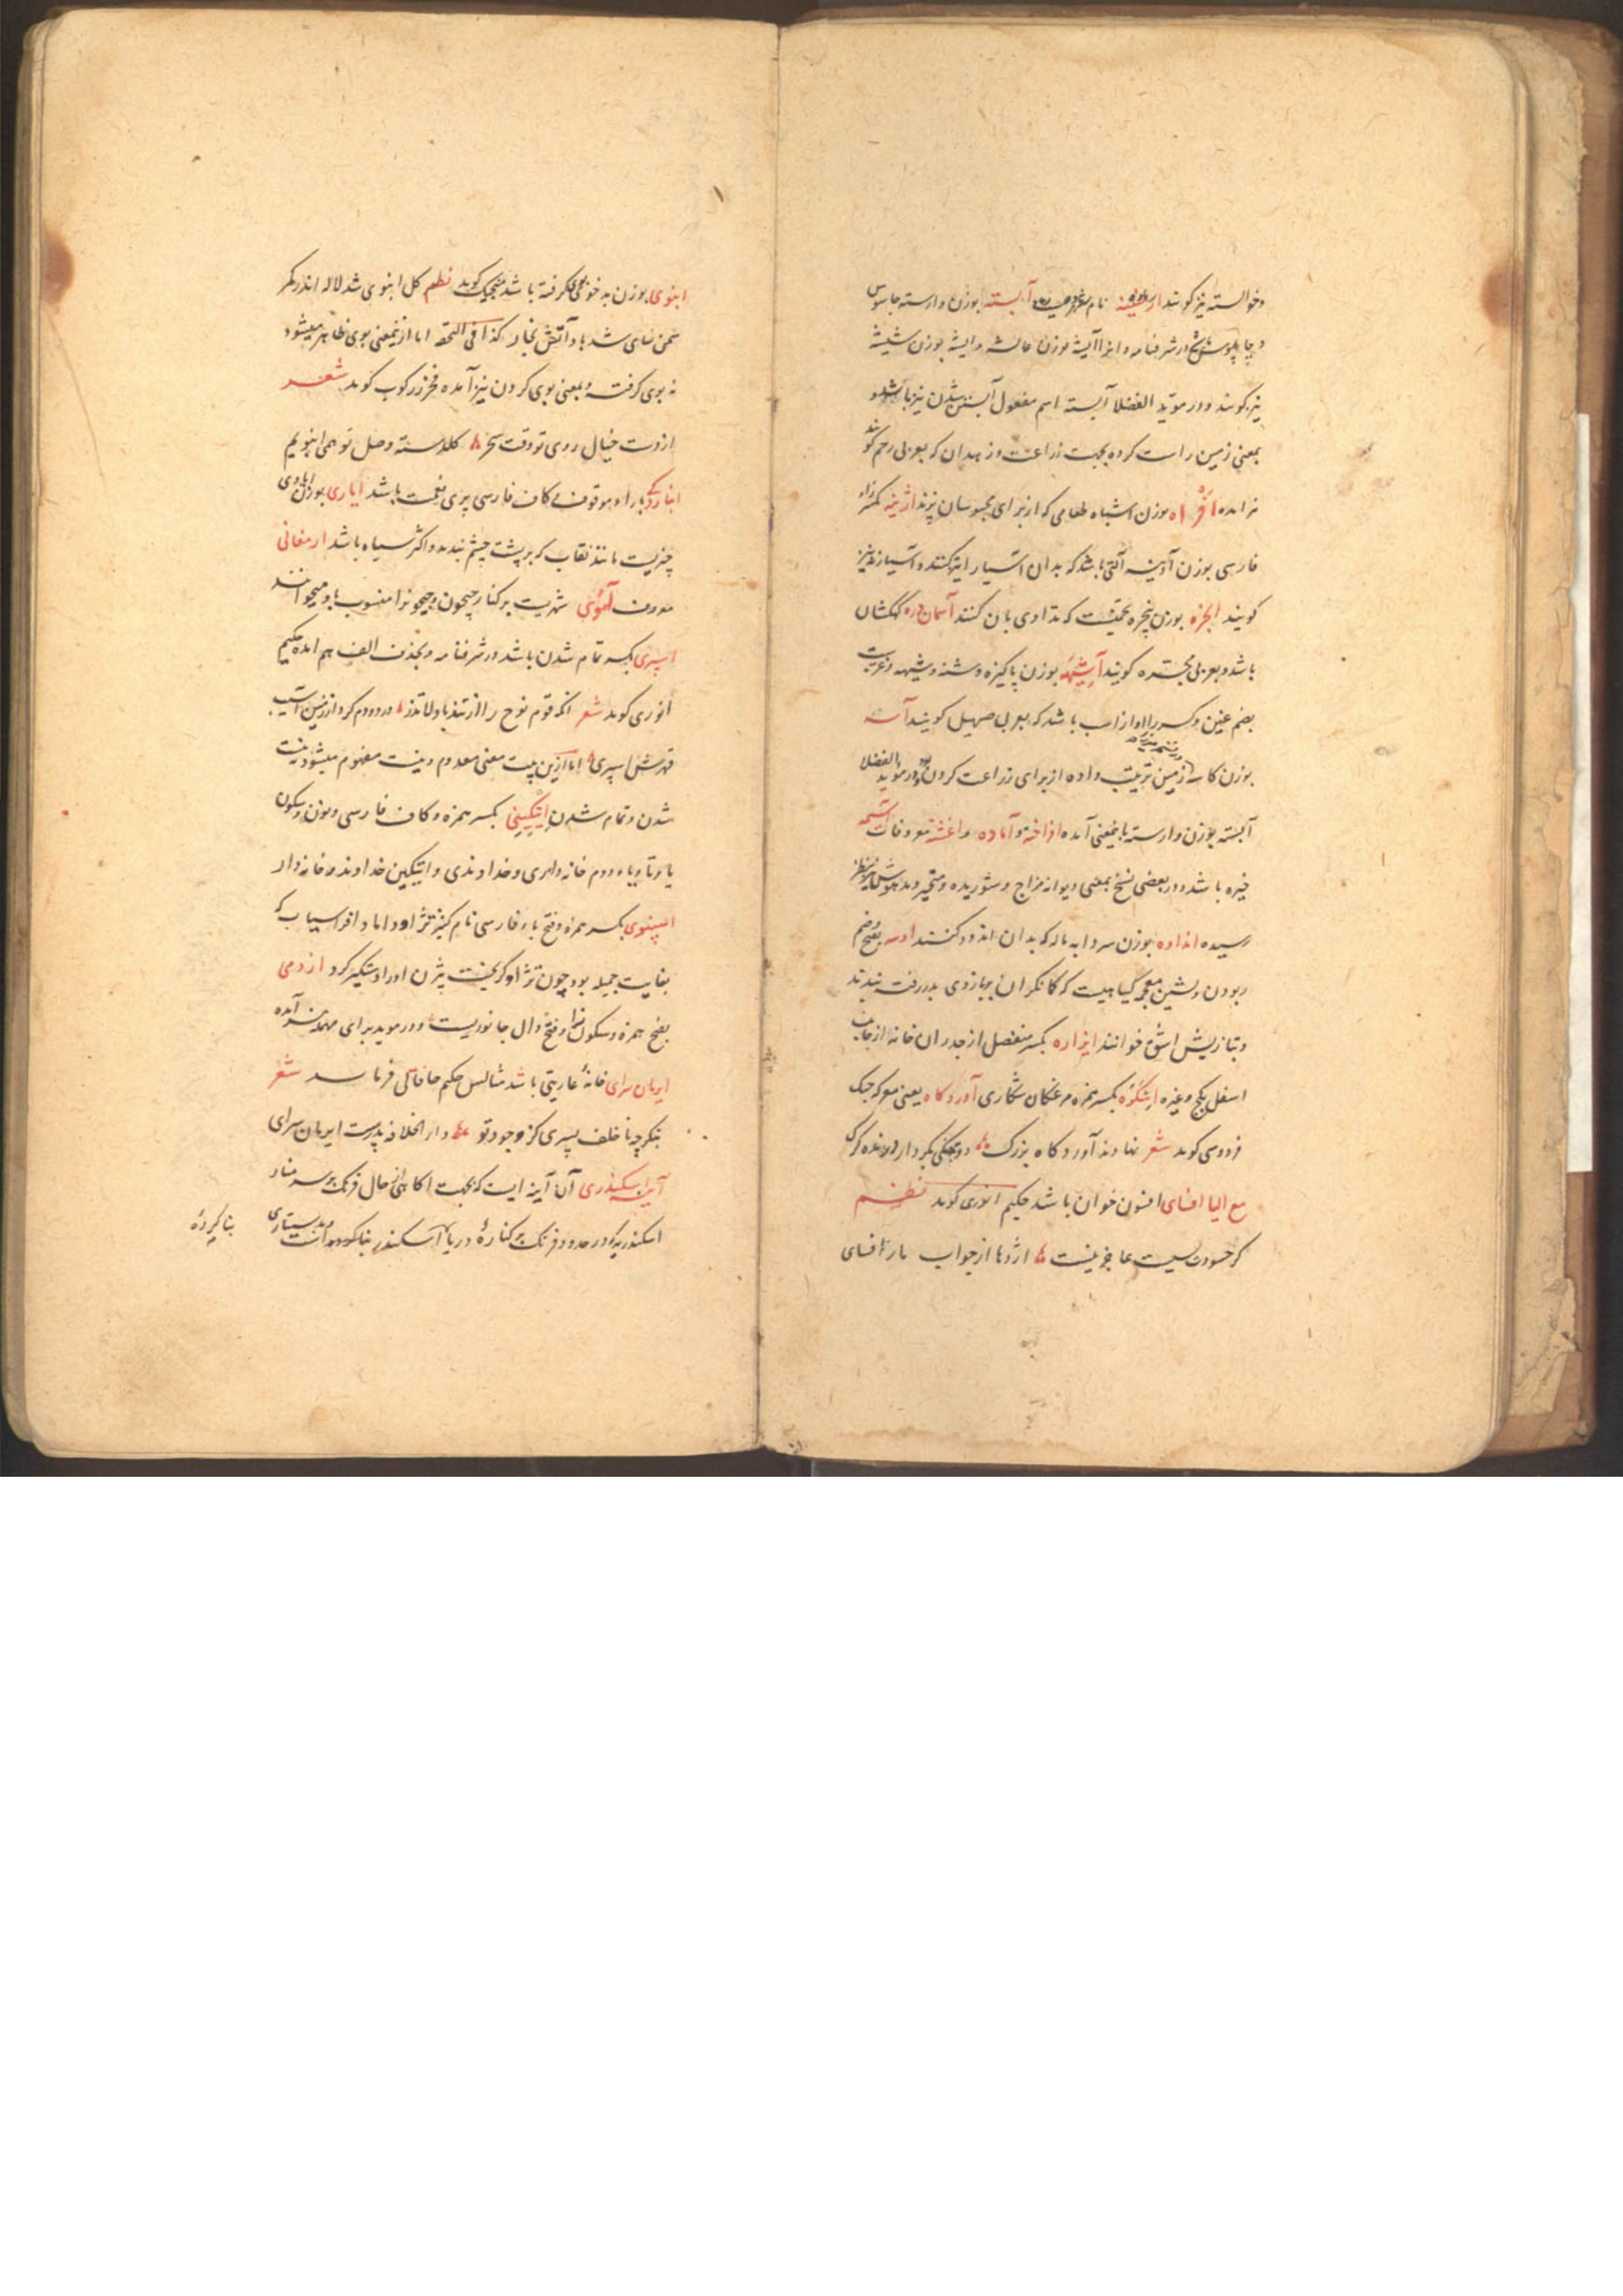 وخوالسته نیز گویند ار نام آبسته بوزن وارسته جاسوس
و چاپلوس در شرفنامه و انرا آایشه بوزن عایشه و ایشه بوزن شیشه
نیز گویند و در موید الفضلا آبسته اسم مفعول آبستن شدن نیز باشد و
بمعنی زمین راست کرده بجهت زراعت و زهدان که بعربی رحم گویند
نیز امده افراه بوزن اشباه طعامی که از برای محبوسان پزند اژینه بکسر زاء
فارسی بوزن آدینه آلتی باشد که بدان آسیا را تیز کنند و آسیا زنه نیز
گویند ابجره بوزن پنجره تخمیست که تداوی بان کنند آسمان دره کهکشان
باشد و بعربی مجسّره گویند آشیهه بوزن پاکیزه و شنه و شیهه و غریب
بضم غین و کسر را اواز اسب باشد که بعربی صهیل گویند آسه
بوزن کاسه زمین تربیت داده از برای زراعت کردن بود و در موید الفضلا
آبسته بوزن وارسته باینمعنی آمده افراخته و آماده و اغشته معروفات آسیمه
خیره باشد و در بعضی نسخ بمعنی دیوانه مزاج و شوریده و متحیر و مدهوش نیز بنظر
رسیده انداوه بوزن سردابه ماله که بدان اندود کنند ادسه بفتح و ضم
ربودن و بشین معجمه کیاهیست که کمانگران بر بازوی بدر رفته بندند
و بتازیش اشق خوانند ایزاره بکسر منفصل از جدران خانه از جانب
اسفل بکج و غیره اشکره بکسر همزه مرغکان شکاری آوردگاه یعنی معرکه جنک
فردوسی گوید شعر نهادند آوردگاه بزرک دو جنگی بکردار درنده گرگ
مع الیا افسای افسون خوان باشد حکیم انوری گوید نظم
گر حسودت بسیست عاجز نیست اژدها از جواب مار افسای
ابنوی بوزن بدخوی گرفته باشد منجیک گوید نظم گل ابنوی شد لاله اندر کمر
سمن نسای شد باد آتش بخار کذا فی التحفه اما ازینمعنی بوی ظاهر میشود
نه بوی گرفته و بمعنی بوی کردن نیز آمده فخر زرکوب گوید شعر
از دست خیال روی تو وقت سحر گلدسته وصل تو همی انبویم
انبارگی باراء موقوف کاف فارسی پری نعمت باشد ایاری بوزن اهاوی
چیزیست مانند نقاب که بر پشت چشم بندند و اکثر سیاه باشد ارمغانی
معروف آموی شهریست بر کنار جیحون و جیحونرا منسوب باو میخوانند
اسپری بکسر تمام شدن باشد در شرفنامه و بحذف الف هم امده حکیم
انوری گوید شعر انکه قوم نوح را از تندباد لاتذر در دو دم کرد از زمین آسیب
قهرش اسپری اما ازین بیت معنی معدوم و نیست مفهوم میشود نیست
شدن و تمام شدن ایتکینی بکسر همزه و کاف فارسی و نون و سکون
یا و تا و یاء دوم خانه داری و خداوندی و ایتکین خداوند و خانه دار
اسپنوی بکسر همزه و فتح باء فارسی نام کنیز تژاو داماد افراسیاب که
بغایت جمیله بود چون تژاو گریخت بیژن او را دستگیر کرد ازدمی
بفتح همزه و سکون زا و فتح دال جانوریست و در موید برای مهمله نیز آمده
ایرمان سرای خانه عاریتی باشد مثالش حکیم خاقانی فرماید شعر
بنکر چه ناخلف پسری کز وجود تو دار الخلافه پدرست ایرمان سرای
آینه اسکندری آن آینه ایست که بجهت اکاهی از حال فرنک بر سر منار
اسکندریه که در حدود فرنک بر کناره دریاء اسکندر بنا کرده است
بنا کرده